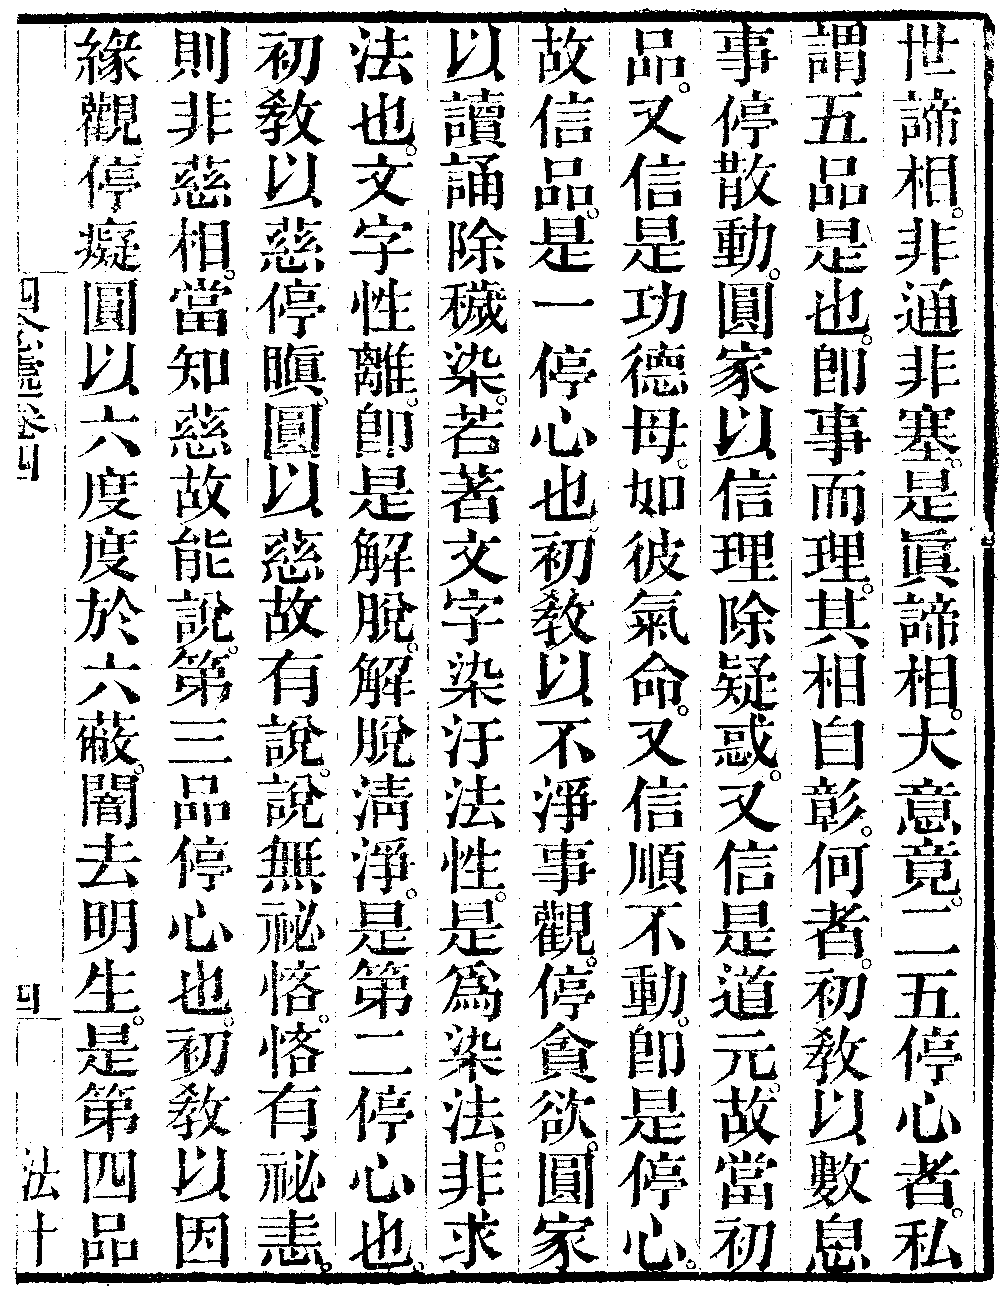 世諦相。非通非塞。是眞諦相。大意竟。二五停心者。私
謂五品是也。卽事而理。其相自彰。何者。初教以數息
事停散動。圓家以信理除疑惑。又信是道元。故當初
品。又信是功德母。如彼氣命。又信順不動。卽是停心。
故信品。是一停心也。初教以不淨事觀。停貪欲。圓家
以讀誦除穢染。若著文字染汙法性。是爲染法。非求
法也。文字性離。卽是解脫。解脫淸淨。是第二停心也。
初教以慈停瞋。圓以慈故有說。說無祕悋。悋有祕恚。
則非慈相。當知慈故能說。第三品停心也。初教以因
緣觀停癡。圓以六度度於六蔽。闇去明生。是第四品
卷四
四
法十